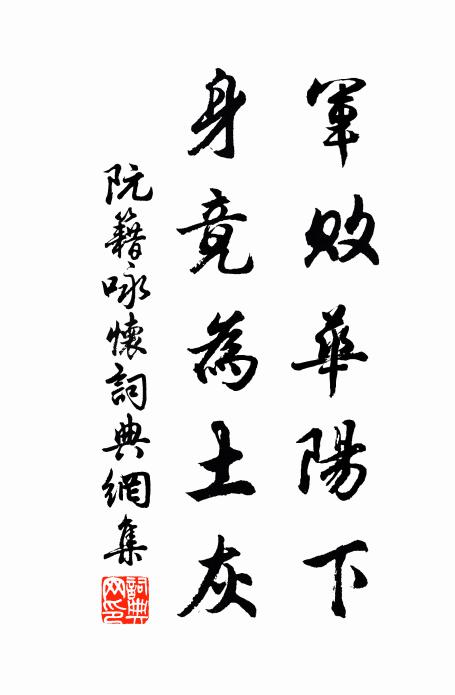 軍敗華陽下
身竟為土灰
阮籍咏懷詞典網集
詞典
网印